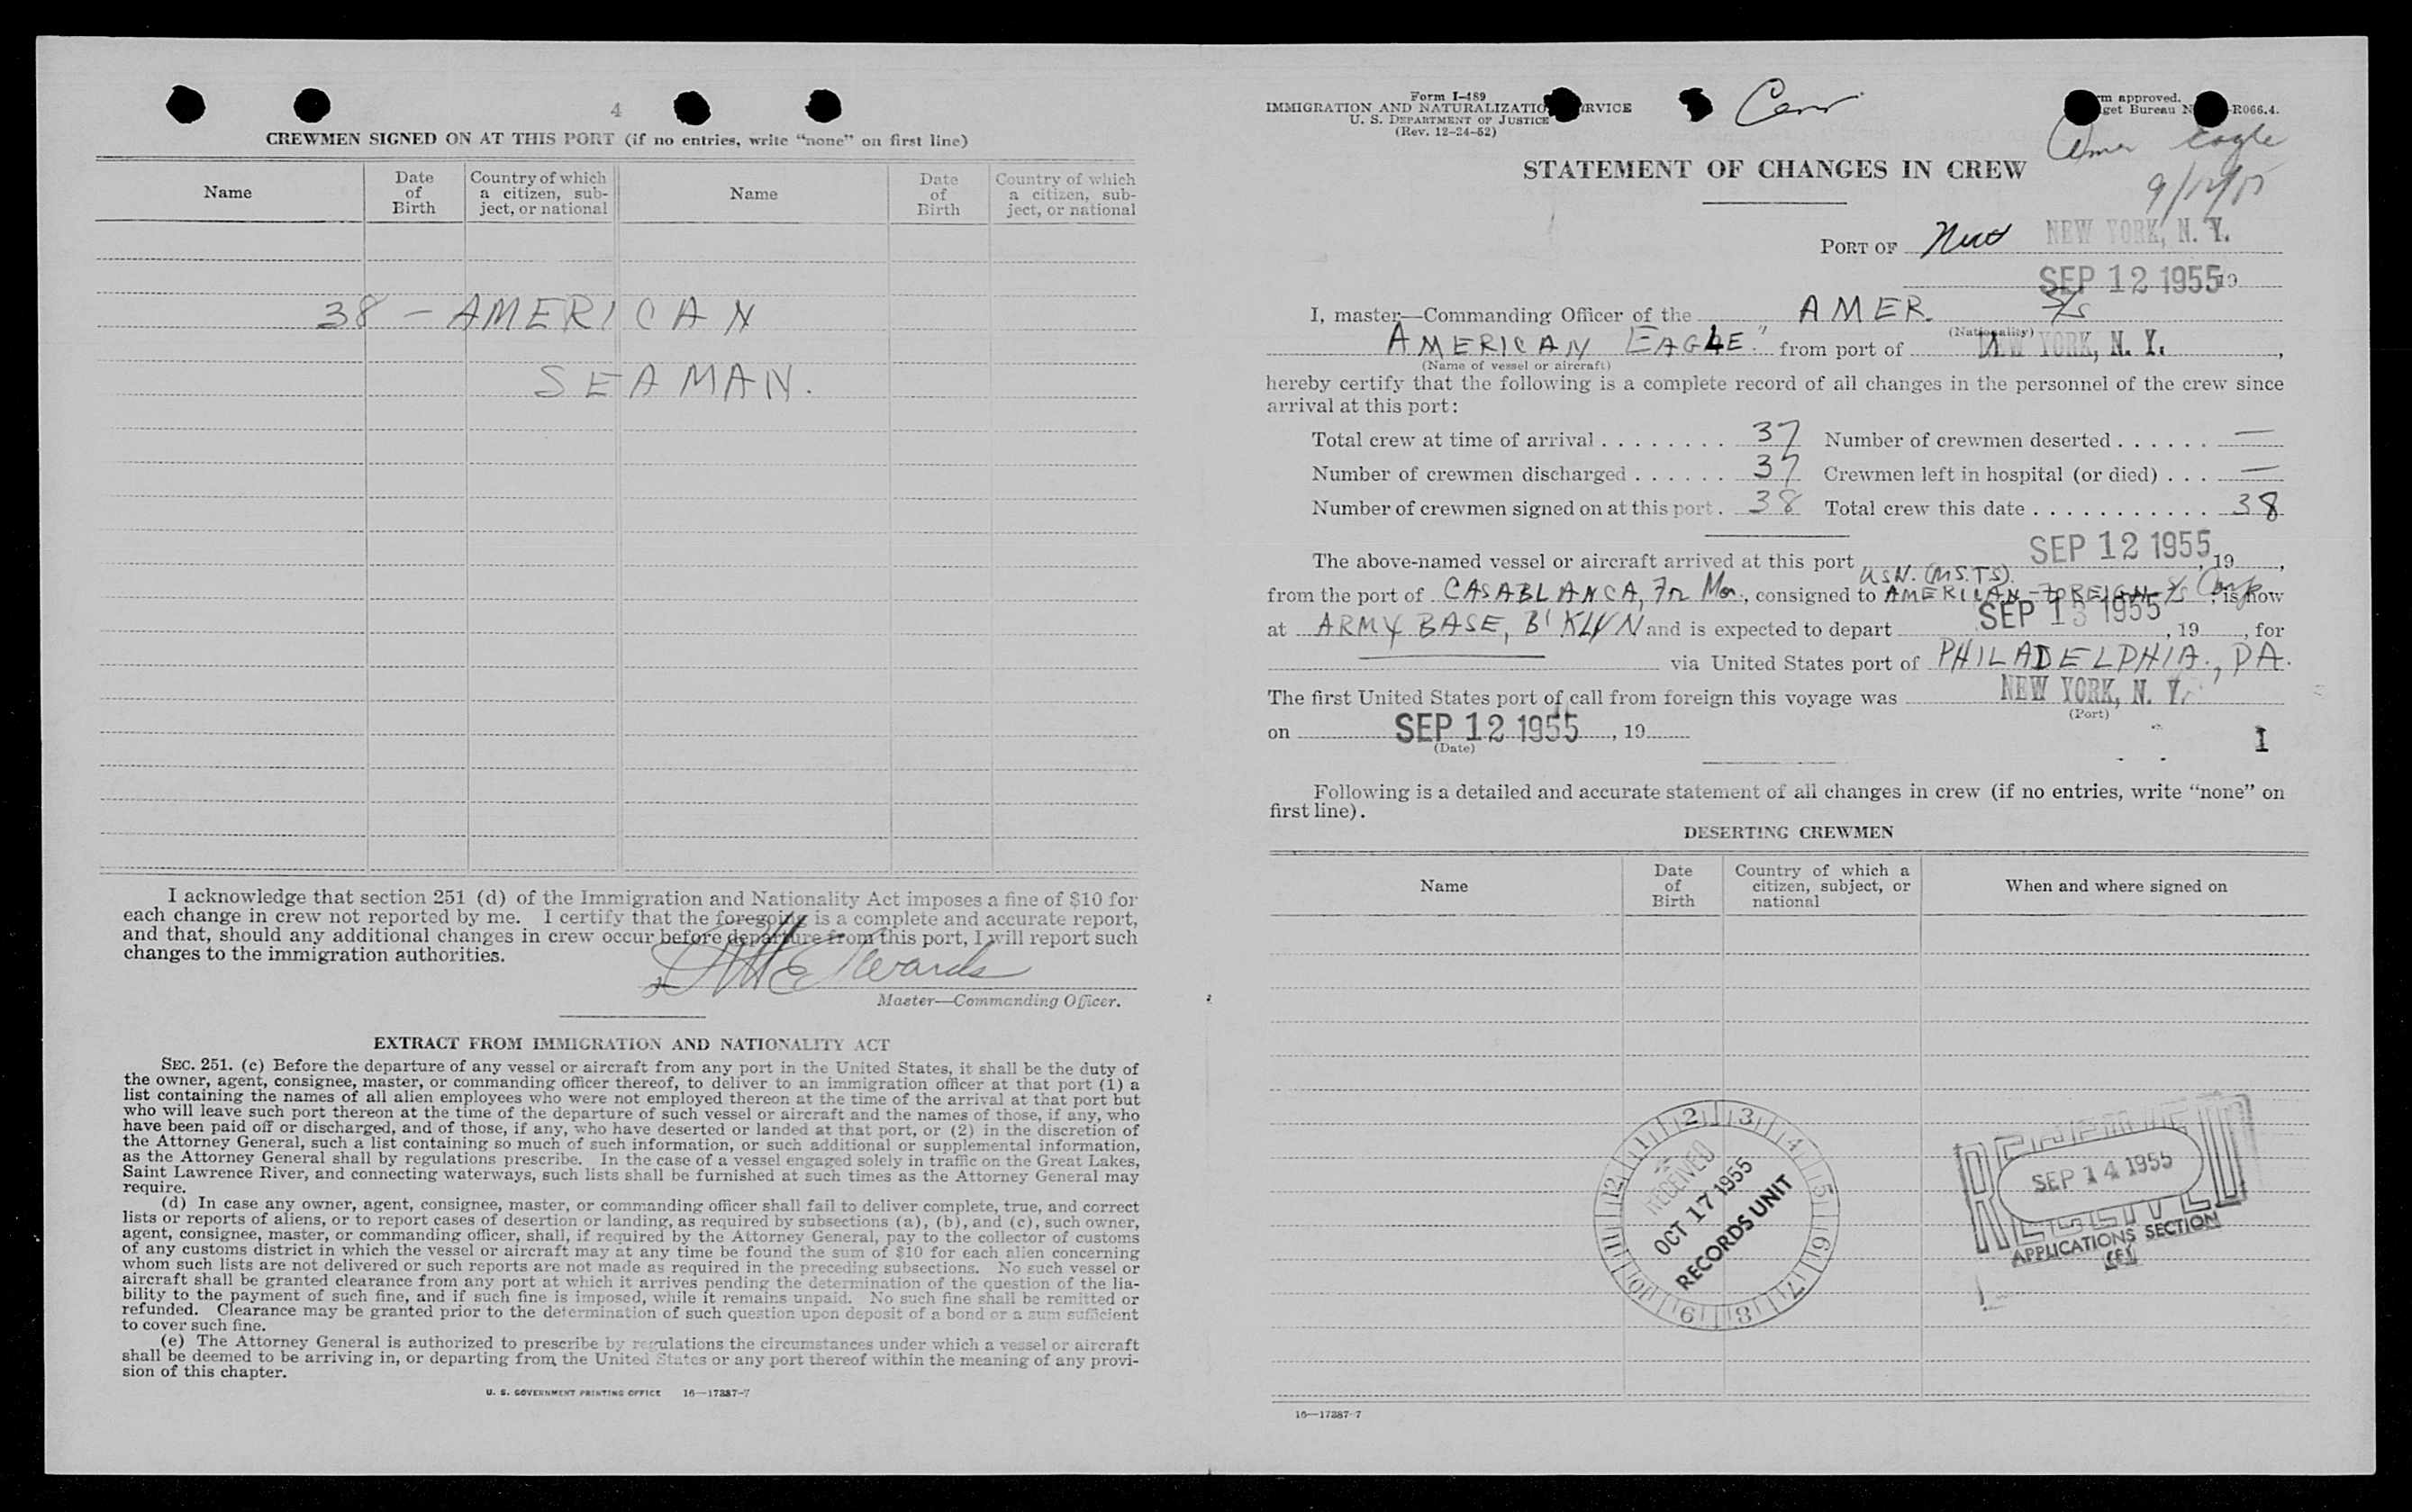 4
CREWMEN SIGNED ON AT THIS PORT (if no entries, write "none" on first line)
Name
Date of Birth
Country of which a citizen, subject, or national
Name
Date of Birth
Country of which a citizen, subject, or national
38 - AMERICAN
SEAMAN.
I acknowledge that section 251 (d) of the Immigration and Nationality Act imposes a fine of $10 for
each change in crew not reported by me. I certify that the foregoing is a complete and accurate report,
and that, should any additional changes in crew occur before departure from this port, I will report such
changes to the immigration authorities.
Edwards
Master—Commanding Officer.
EXTRACT FROM IMMIGRATION AND NATIONALITY ACT
SEC. 251. (c) Before the departure of any vessel or aircraft from any port in the United States, it shall be the duty of
the owner, agent, consignee, master, or commanding officer thereof, to deliver to an immigration officer at that port (1) a
list containing the names of all alien employees who were not employed thereon at the time of the arrival at that port but
who will leave such port thereon at the time of the departure of such vessel or aircraft and the names of those, if any, who
have been paid off or discharged, and of those, if any, who have deserted or landed at that port, or (2) in the discretion of
the Attorney General, such a list containing so much of such information, or such additional or supplemental information,
as the Attorney General shall by regulations prescribe. In the case of a vessel engaged solely in traffic on the Great Lakes,
Saint Lawrence River, and connecting waterways, such lists shall be furnished at such times as the Attorney General may
require.
(d) In case any owner, agent, consignee, master, or commanding officer shall fail to deliver complete, true, and correct
lists or reports of aliens, or to report cases of desertion or landing, as required by subsections (a), (b), and (c), such owner,
agent, consignee, master, or commanding officer, shall, if required by the Attorney General, pay to the collector of customs
of any customs district in which the vessel or aircraft may at any time be found the sum of $10 for each alien concerning
whom such lists are not delivered or such reports are not made as required in the preceding subsections. No such vessel or
aircraft shall be granted clearance from any port at which it arrives pending the determination of the question of the lia-
bility to the payment of such fine, and if such fine is imposed, while it remains unpaid. No such fine shall be remitted or
refunded. Clearance may be granted prior to the determination of such question upon deposit of a bond or a sum sufficient
to cover such fine.
(e) The Attorney General is authorized to prescribe by regulations the circumstances under which a vessel or aircraft
shall be deemed to be arriving in, or departing from, the United States or any port thereof within the meaning of any provi-
sion of this chapter.
U. S. GOVERNMENT PRINTING OFFICE 16—17387-7
Form I-489
IMMIGRATION AND NATURALIZATIO RVICE
U. S. DEPARTMENT OF JUSTICE
(Rev. 12-24-52)
m approved.
get Bureau N R066.4.
Amer Eagle
9/12/55
STATEMENT OF CHANGES IN CREW
PORT OF New NEW YORK, N. Y.
SEP 12 1955 19
I, master—Commanding Officer of the AMER. S/S
(Nationality)
AMERICAN EAGLE" from port of NEW YORK, N. Y.,
(Name of vessel or aircraft)
hereby certify that the following is a complete record of all changes in the personnel of the crew since
arrival at this port:
Total crew at time of arrival . . . . . . . . 37 Number of crewmen deserted . . . . . . —
Number of crewmen discharged . . . . . . 37 Crewmen left in hospital (or died) . . . —
Number of crewmen signed on at this port . 38 Total crew this date . . . . . . . . . . . 38
The above-named vessel or aircraft arrived at this port SEP 12 1955, 19 ,
U.S.N. (M.S.T.S).
from the port of CASABLANCA, Fr Mor., consigned to AMERICAN-FOREIGN S/S Corp, is now
at ARMY BASE, B'KLYN and is expected to depart SEP 13 1955, 19 , for
via United States port of PHILADELPHIA., PA.
The first United States port of call from foreign this voyage was NEW YORK, N. Y.
(Port)
on SEP 12 1955, 19
(Date)
I
Following is a detailed and accurate statement of all changes in crew (if no entries, write "none" on
first line).
DESERTING CREWMEN
Name
Date of Birth
Country of which a citizen, subject, or national
When and where signed on
12 1 2 3 4 5 6 7 8 9 10 11
RECEIVED
OCT 17 1955
RECORDS UNIT
RECEIVED
SEP 14 1955
APPLICATIONS SECTION
16—17387-7